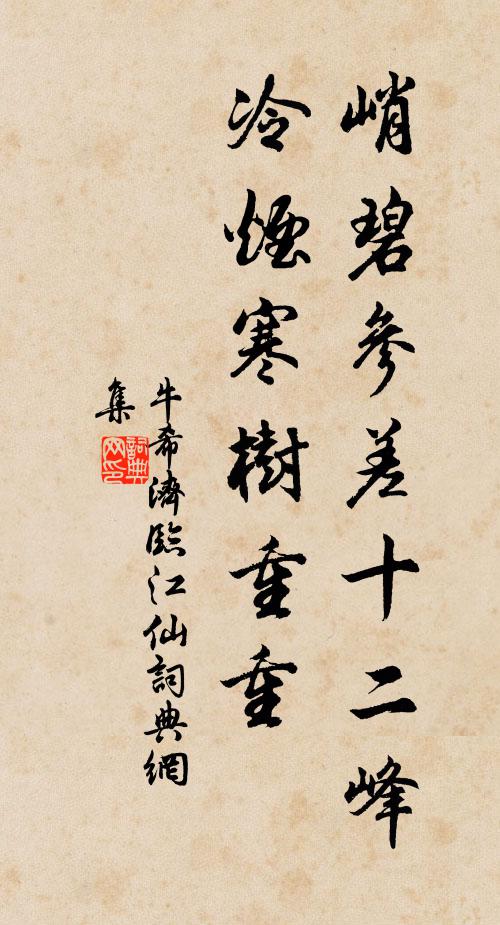 峭碧參差十二峰
冷煙寒樹重重
牛希濟臨江仙詞典網
集
詞典網印